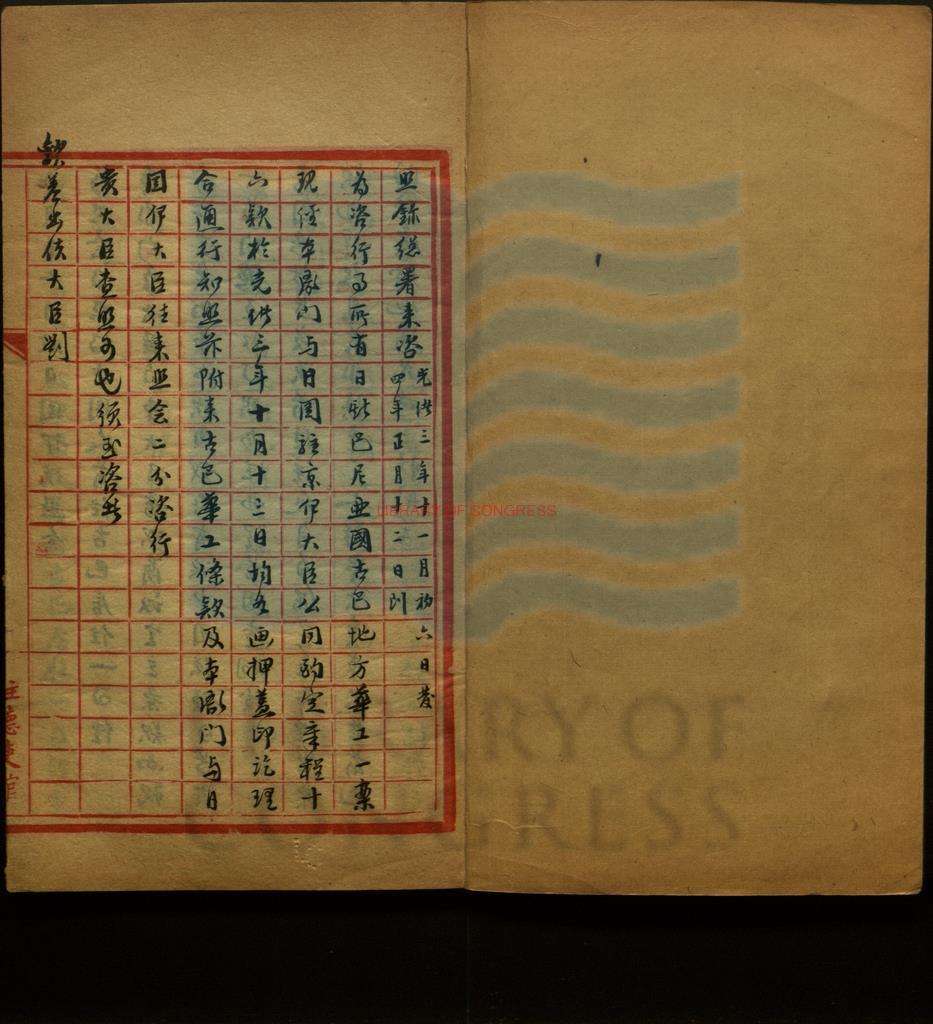 照錄總署來咨
光緒三年十一月初六日發
四年正月十二日到
為咨行事所有日斯巴尼亞國古巴地方華工一案
現經本衙門與日國駐京伊大臣公同酌定章程十
六款於光緒三年十月十三日均各画押蓋印訖理
合通行知照并附來古巴華工條款及本衙門与日
国伊大臣往来照会二分咨行
貴大臣查照可也須至咨者
欽差出使大臣劉
駐德使館
LIBRARY OF CONGRESS
LIBRARY OF
CONGRESS